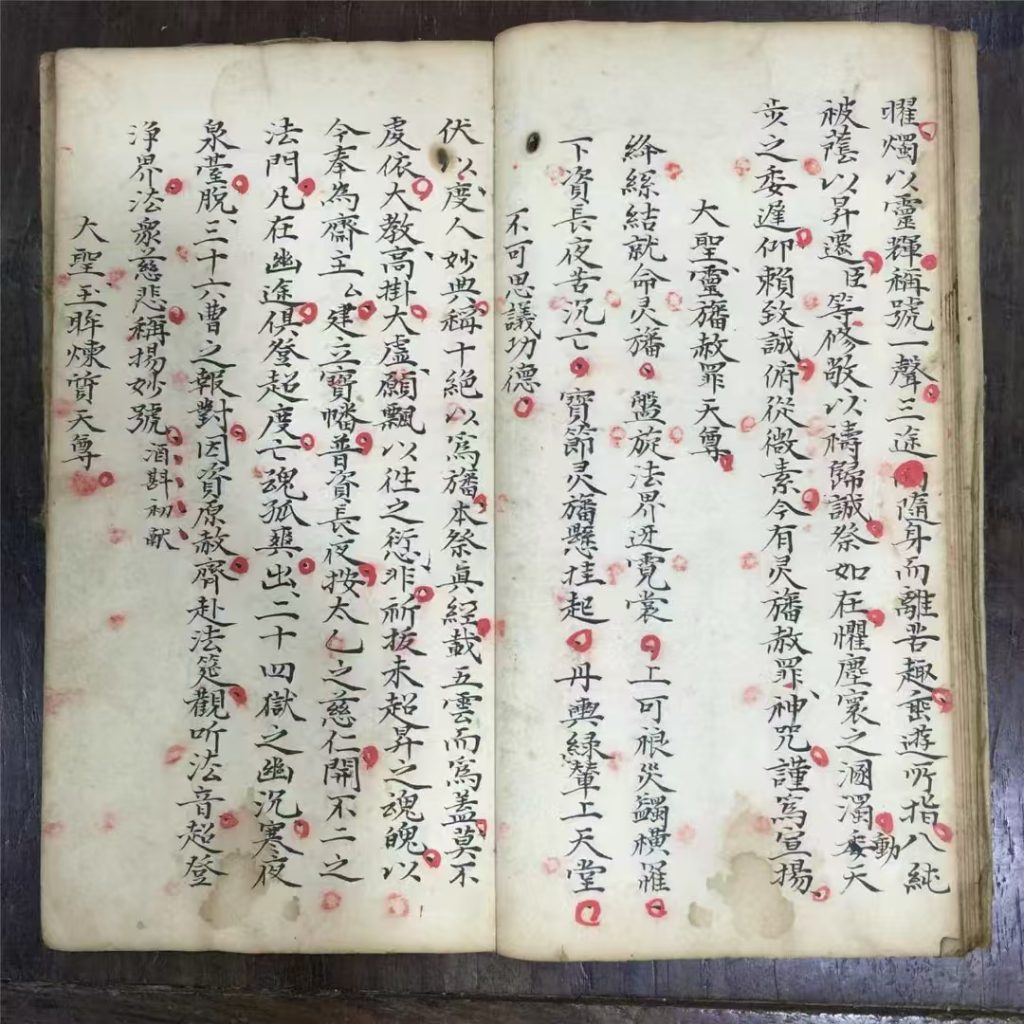 曜燭以靈輝稱號一聲三途隨身而離苦趣遊所指八純
被蔭以昇遷臣等修敬以禱歸誠祭如在懼塵寰之溷濁動委天
步之委遲仰賴致誠俯從微素今有灵旛赦罪神咒謹寫宣揚
大聖靈旛赦罪天尊
絳綵結就命灵旛盤旋法界迓霓裳上可禳災蠲橫罹
下資長夜苦沉亡寶節灵旛懸挂起丹輿綠輦上天堂
不可思議功德
伏以度人妙典稱十絶以爲旛本祭真經載五雲而爲盖莫不
處依大教高掛大虛願飄以徃之愆非祈拔未超昇之魂魄以
今奉為齋主厶建立寶幡普資長夜按太乙之慈仁開不二之
法門凡在幽途俱登超度亡魂孤爽出二十四獄之幽沉寒夜
泉臺脫三十六曹之報對因資原赦齊赴法筵觀听法音超登
淨界法衆慈悲稱揚妙號酒斟初献
大聖玉眸煉質天尊